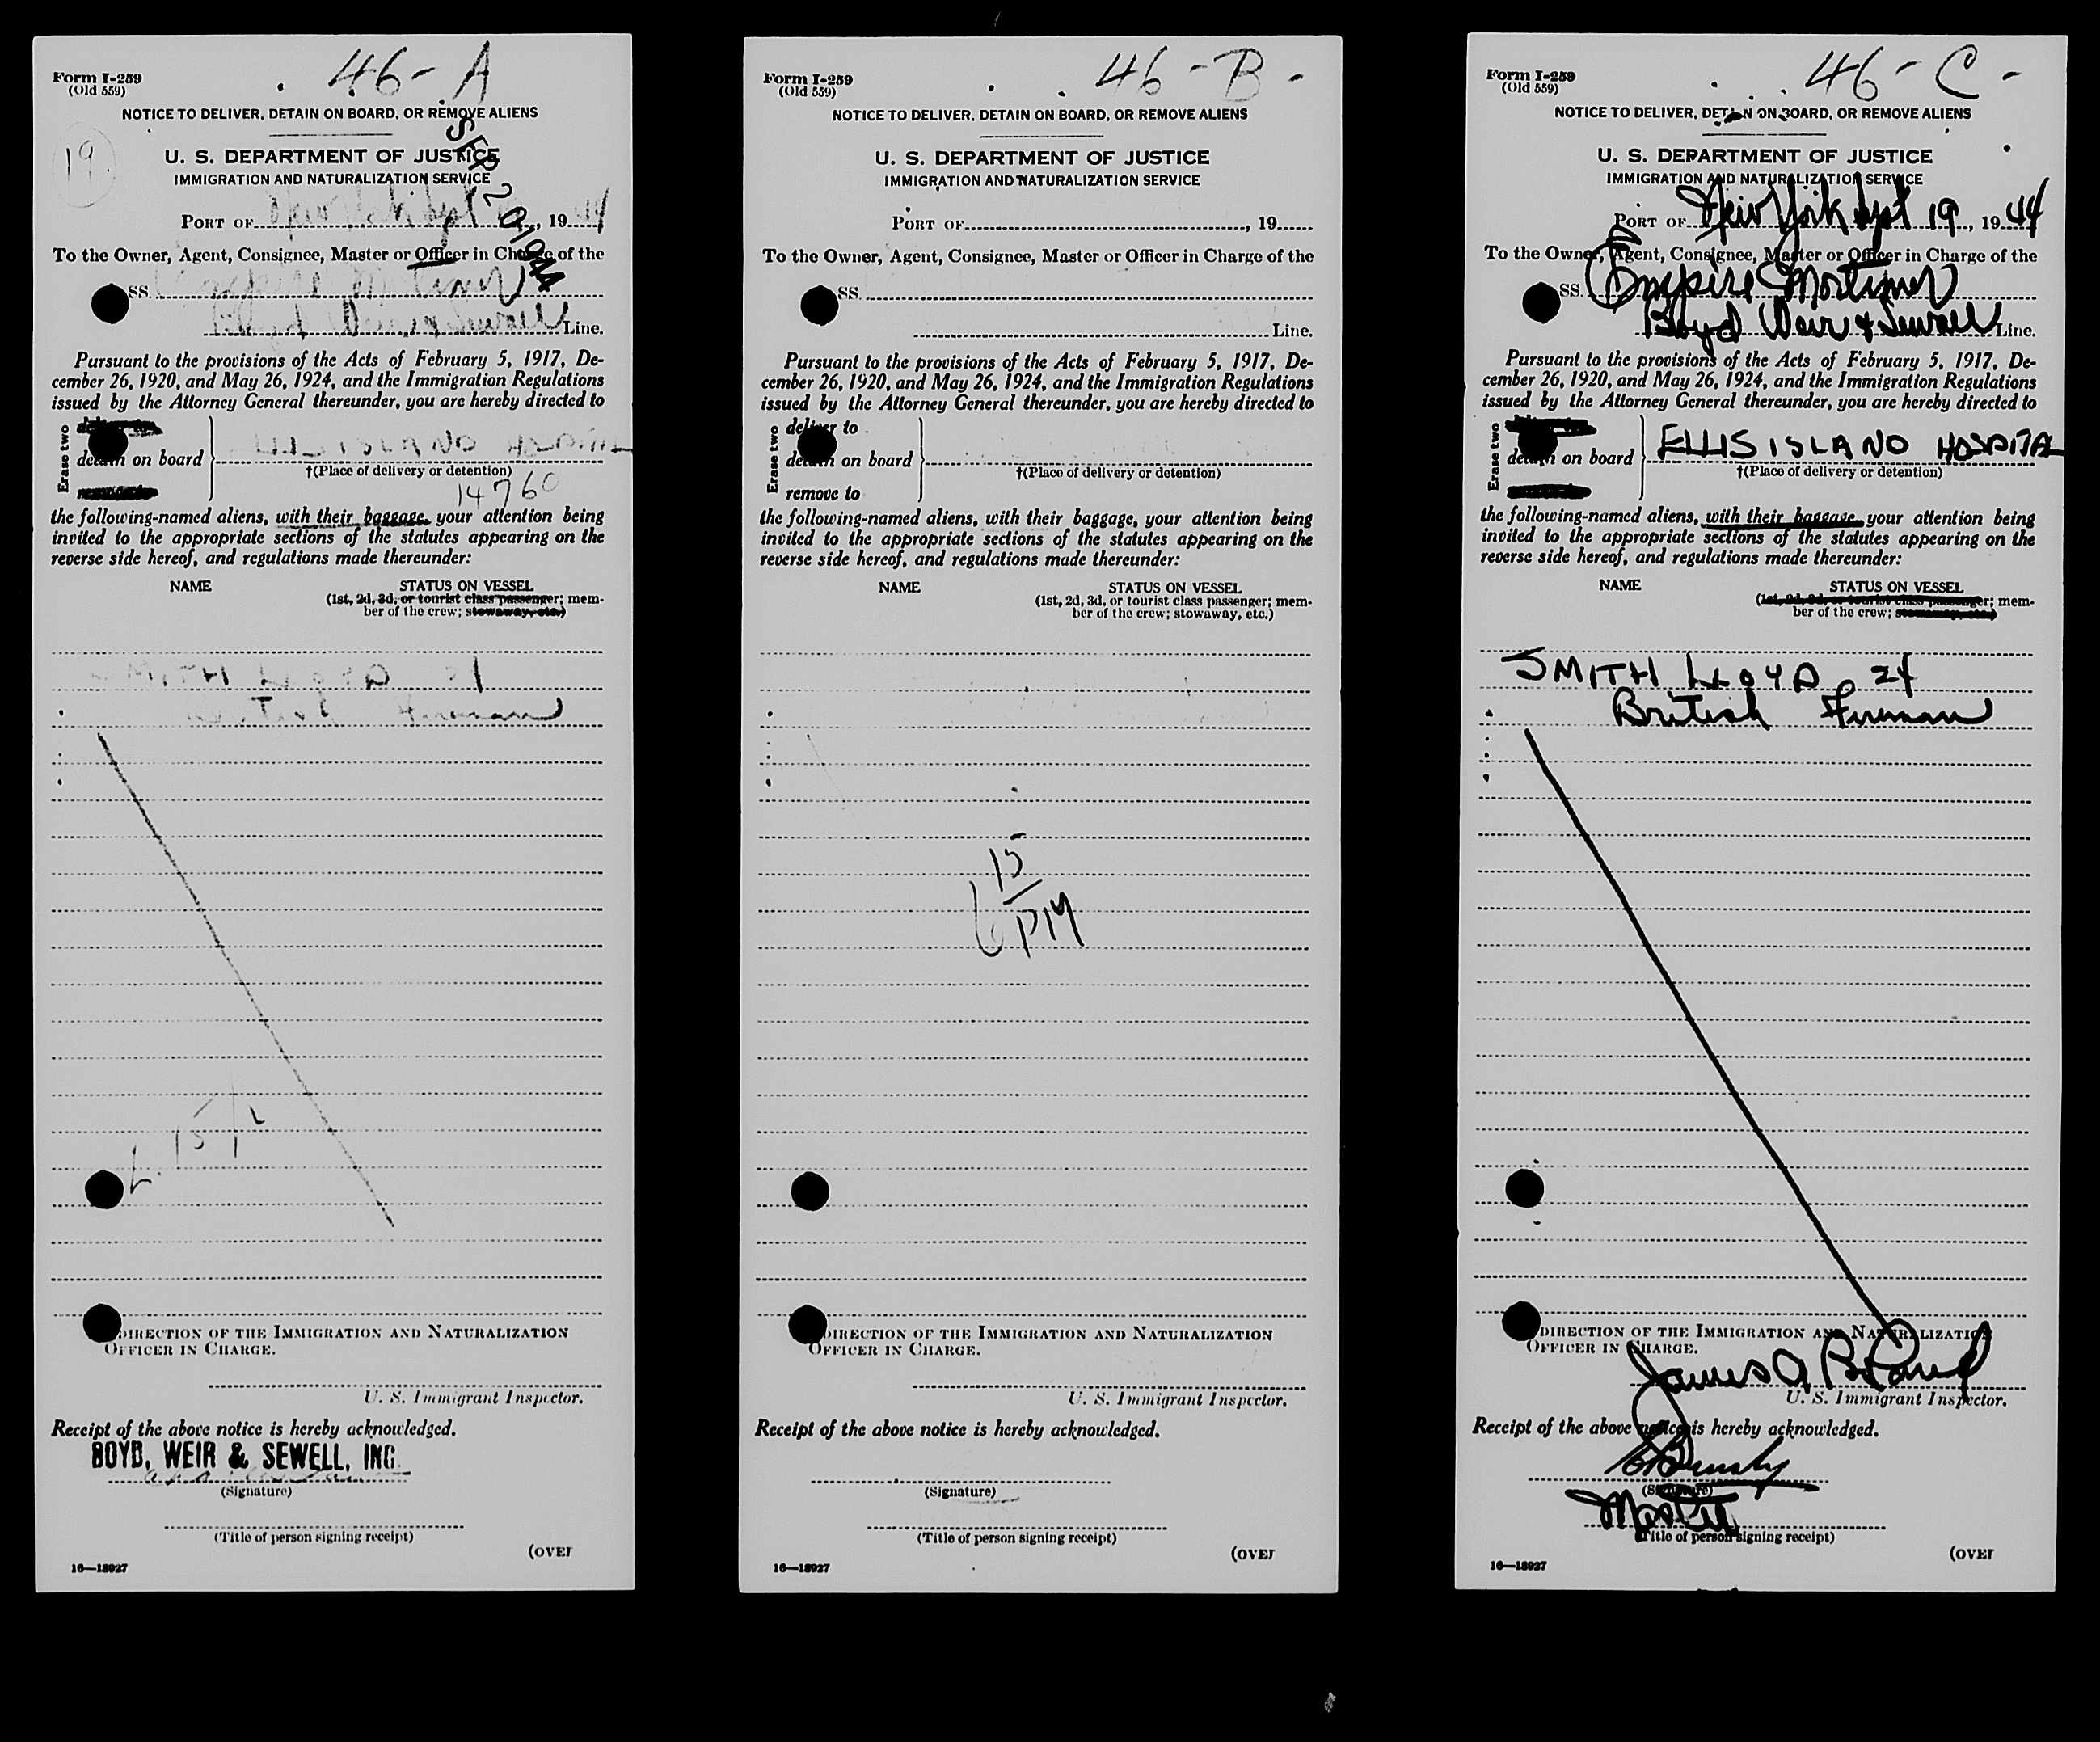 46-A
Form I-259
(Old 559)
NOTICE TO DELIVER, DETAIN ON BOARD, OR REMOVE ALIENS
19
SEP 20 1944
U. S. DEPARTMENT OF JUSTICE
IMMIGRATION AND NATURALIZATION SERVICE
PORT OF New York Sept, 1944
To the Owner, Agent, Consignee, Master or Officer in Charge of the
SS. Empire Mortimer
Boyd Weir & Sewall Line.
Pursuant to the provisions of the Acts of February 5, 1917, De-
cember 26, 1920, and May 26, 1924, and the Immigration Regulations
issued by the Attorney General thereunder, you are hereby directed to
Erase two
detain on board
ELLIS ISLAND HOSPITAL
†(Place of delivery or detention)
14760
the following-named aliens, with their baggage, your attention being
invited to the appropriate sections of the statutes appearing on the
reverse side hereof, and regulations made thereunder:
NAME STATUS ON VESSEL
(1st, 2d, 3d, or tourist class passenger; mem-
ber of the crew; stowaway, etc.)
SMITH LLOYD
British Fireman
DIRECTION OF THE IMMIGRATION AND NATURALIZATION
OFFICER IN CHARGE.
U. S. Immigrant Inspector.
Receipt of the above notice is hereby acknowledged.
BOYD, WEIR & SEWELL, INC.
(Signature)
(Title of person signing receipt)
(OVER
16—18927
46-B-
Form I-259
(Old 559)
NOTICE TO DELIVER, DETAIN ON BOARD, OR REMOVE ALIENS
U. S. DEPARTMENT OF JUSTICE
IMMIGRATION AND NATURALIZATION SERVICE
PORT OF, 19
To the Owner, Agent, Consignee, Master or Officer in Charge of the
SS.
Line.
Pursuant to the provisions of the Acts of February 5, 1917, De-
cember 26, 1920, and May 26, 1924, and the Immigration Regulations
issued by the Attorney General thereunder, you are hereby directed to
Erase two
deliver to
detain on board
remove to
†(Place of delivery or detention)
the following-named aliens, with their baggage, your attention being
invited to the appropriate sections of the statutes appearing on the
reverse side hereof, and regulations made thereunder:
NAME STATUS ON VESSEL
(1st, 2d, 3d, or tourist class passenger; mem-
ber of the crew; stowaway, etc.)
6 15 PM
DIRECTION OF THE IMMIGRATION AND NATURALIZATION
OFFICER IN CHARGE.
U. S. Immigrant Inspector.
Receipt of the above notice is hereby acknowledged.
(Signature)
(Title of person signing receipt)
(OVER
16—18927
46-C-
Form I-259
(Old 559)
NOTICE TO DELIVER, DETAIN ON BOARD, OR REMOVE ALIENS
U. S. DEPARTMENT OF JUSTICE
IMMIGRATION AND NATURALIZATION SERVICE
PORT OF New York Sept 19, 1944
To the Owner, Agent, Consignee, Master or Officer in Charge of the
SS. Empire Mortimer
Boyd Weir & Sewall Line.
Pursuant to the provisions of the Acts of February 5, 1917, De-
cember 26, 1920, and May 26, 1924, and the Immigration Regulations
issued by the Attorney General thereunder, you are hereby directed to
Erase two
detain on board
ELLIS ISLAND HOSPITAL
†(Place of delivery or detention)
the following-named aliens, with their baggage, your attention being
invited to the appropriate sections of the statutes appearing on the
reverse side hereof, and regulations made thereunder:
NAME STATUS ON VESSEL
(1st, 2d, 3d, or tourist class passenger; mem-
ber of the crew; stowaway, etc.)
SMITH LLOYD 24
British Fireman
DIRECTION OF THE IMMIGRATION AND NATURALIZATION
OFFICER IN CHARGE.
James A
U. S. Immigrant Inspector.
Receipt of the above notice is hereby acknowledged.
(Signature)
Master
(Title of person signing receipt)
(OVER
16—18927